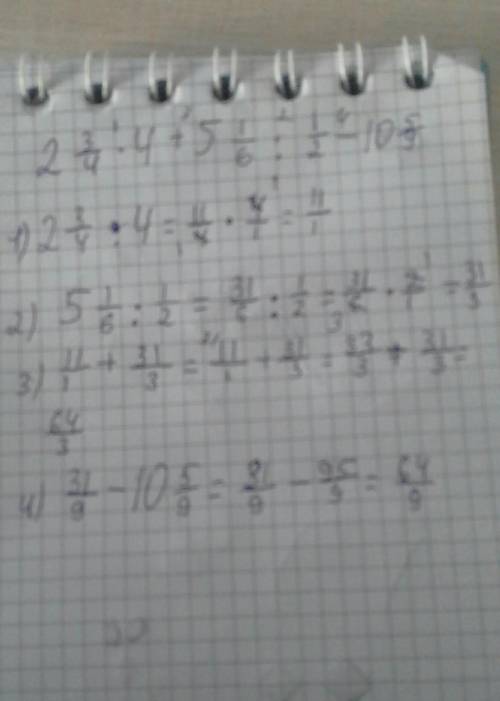 2 3/4 · 4 + 5 1/6 : 1/2 - 10 5/9
1) 2 3/4 · 4 = 11/4 · 4/1 = 11/1
2) 5 1/6 : 1/2 = 31/6 : 1/2 = 31/6 · 2/1 = 31/3
3) 11/1 + 31/3 = 11/1 + 31/3 = 33/3 + 31/3 =
64/3
4) 31/9 - 10 5/9 = 31/9 - 95/9 = 64/9